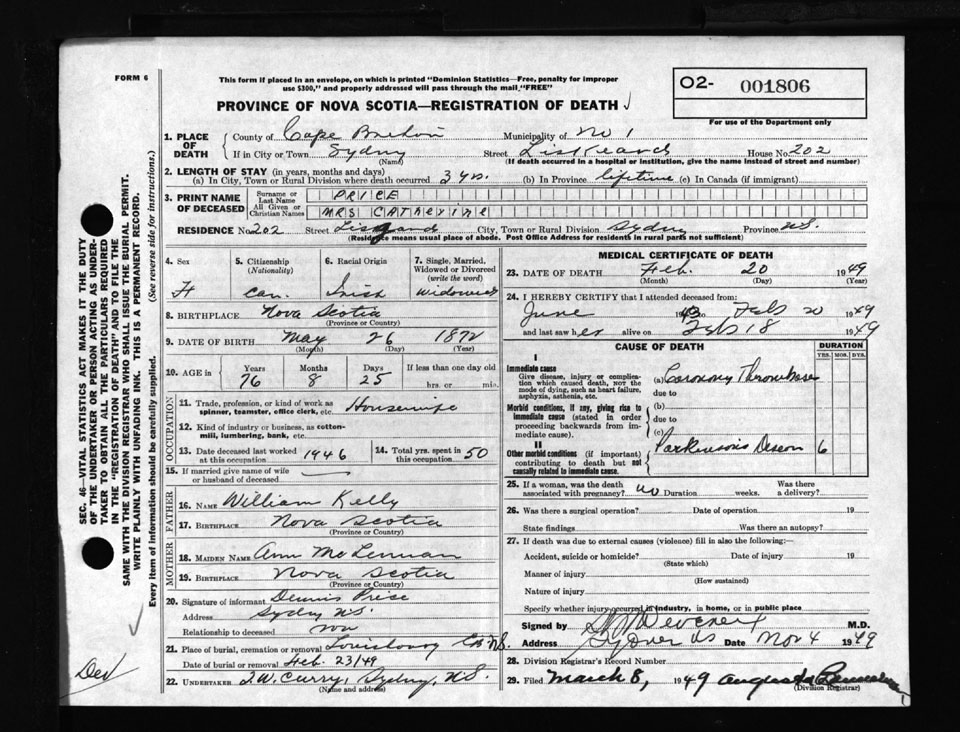 FORM 6
This form if placed in an envelope, on which is printed "Dominion Statistics—Free, penalty for improper
use $300," and properly addressed will pass through the mail "FREE"
O2- 001806
For use of the Department only
PROVINCE OF NOVA SCOTIA—REGISTRATION OF DEATH
1. PLACE OF DEATH County of Cape Breton Municipality of No 1
If in City or Town Sydney (Name) Street Liskeard House No. 202
(If death occurred in a hospital or institution, give the name instead of street and number)
2. LENGTH OF STAY (in years, months and days)
(a) In City, Town or Rural Division where death occurred 3 yrs. (b) In Province lifetime (c) In Canada (if immigrant)
3. PRINT NAME OF DECEASED Surname or Last Name PRICE
All Given or Christian Names MRS CATHERINE
RESIDENCE No. 202 Street City, Town or Rural Division Sydney Province N.S.
(Residence means usual place of abode. Post Office Address for residents in rural parts not sufficient)
4. Sex F
5. Citizenship (Nationality) Can.
6. Racial Origin Irish
7. Single, Married, Widowed or Divorced (write the word) Widowed
8. BIRTHPLACE Nova Scotia
(Province or Country)
9. DATE OF BIRTH May 26 1872
(Month) (Day) (Year)
10. AGE in Years 76 Months 8 Days 25 If less than one day old hrs. or min.
OCCUPATION
11. Trade, profession, or kind of work as spinner, teamster, office clerk, etc. Housewife
12. Kind of industry or business, as cotton-mill, lumbering, bank, etc.
13. Date deceased last worked at this occupation 1946
14. Total yrs. spent in this occupation 50
15. If married give name of wife or husband of deceased
FATHER
16. NAME William Kelly
17. BIRTHPLACE Nova Scotia
(Province or Country)
MOTHER
18. MAIDEN NAME Ann McLennan
19. BIRTHPLACE Nova Scotia
(Province or Country)
20. Signature of informant Dennis Price
Address Sydney N.S.
Relationship to deceased son
21. Place of burial, cremation or removal Louisbourg CB N.S.
Date of burial or removal Feb. 23/49
22. UNDERTAKER T.W. Curry, Sydney, N.S.
(Name and address)
MEDICAL CERTIFICATE OF DEATH
23. DATE OF DEATH Feb. 20 1949
(Month) (Day) (Year)
24. I HEREBY CERTIFY that I attended deceased from:
June 1943 to Feb 20 1949
and last saw her alive on Feb 18 1949
CAUSE OF DEATH
DURATION
YRS. MOS. DYS.
I
Immediate cause
Give disease, injury or complication which caused death, NOT the mode of dying, such as heart failure, asphyxia, asthenia, etc.
(a) Coronary Thrombosis
due to
Morbid conditions, if any, giving rise to immediate cause (stated in order proceeding backwards from immediate cause).
(b)
due to
(c)
II
Other morbid conditions (if important) contributing to death but not causally related to immediate cause.
Parkinson's Disease 6
25. If a woman, was the death associated with pregnancy? no Duration weeks. Was there a delivery?
26. Was there a surgical operation? Date of operation 19
State findings Was there an autopsy?
27. If death was due to external causes (violence) fill in also the following:
Accident, suicide or homicide? Date of injury 19
(State which)
Manner of injury
(How sustained)
Nature of injury
Specify whether injury occurred in industry, in home, or in public place
Signed by M.D.
Address Sydney NS Date Nov 4 1949
28. Division Registrar's Record Number
29. Filed March 8, 1949 Augusta
(Division Registrar)
SEC. 46—VITAL STATISTICS ACT MAKES IT THE DUTY
OF THE UNDERTAKER OR PERSON ACTING AS UNDER-
TAKER TO OBTAIN ALL THE PARTICULARS REQUIRED
IN THE "REGISTRATION OF DEATH" AND TO FILE THE
SAME WITH THE DIVISION REGISTRAR WHO SHALL ISSUE THE BURIAL PERMIT.
WRITE PLAINLY WITH UNFADING INK. THIS IS A PERMANENT RECORD.
Every item of information should be carefully supplied. (See reverse side for instructions.)